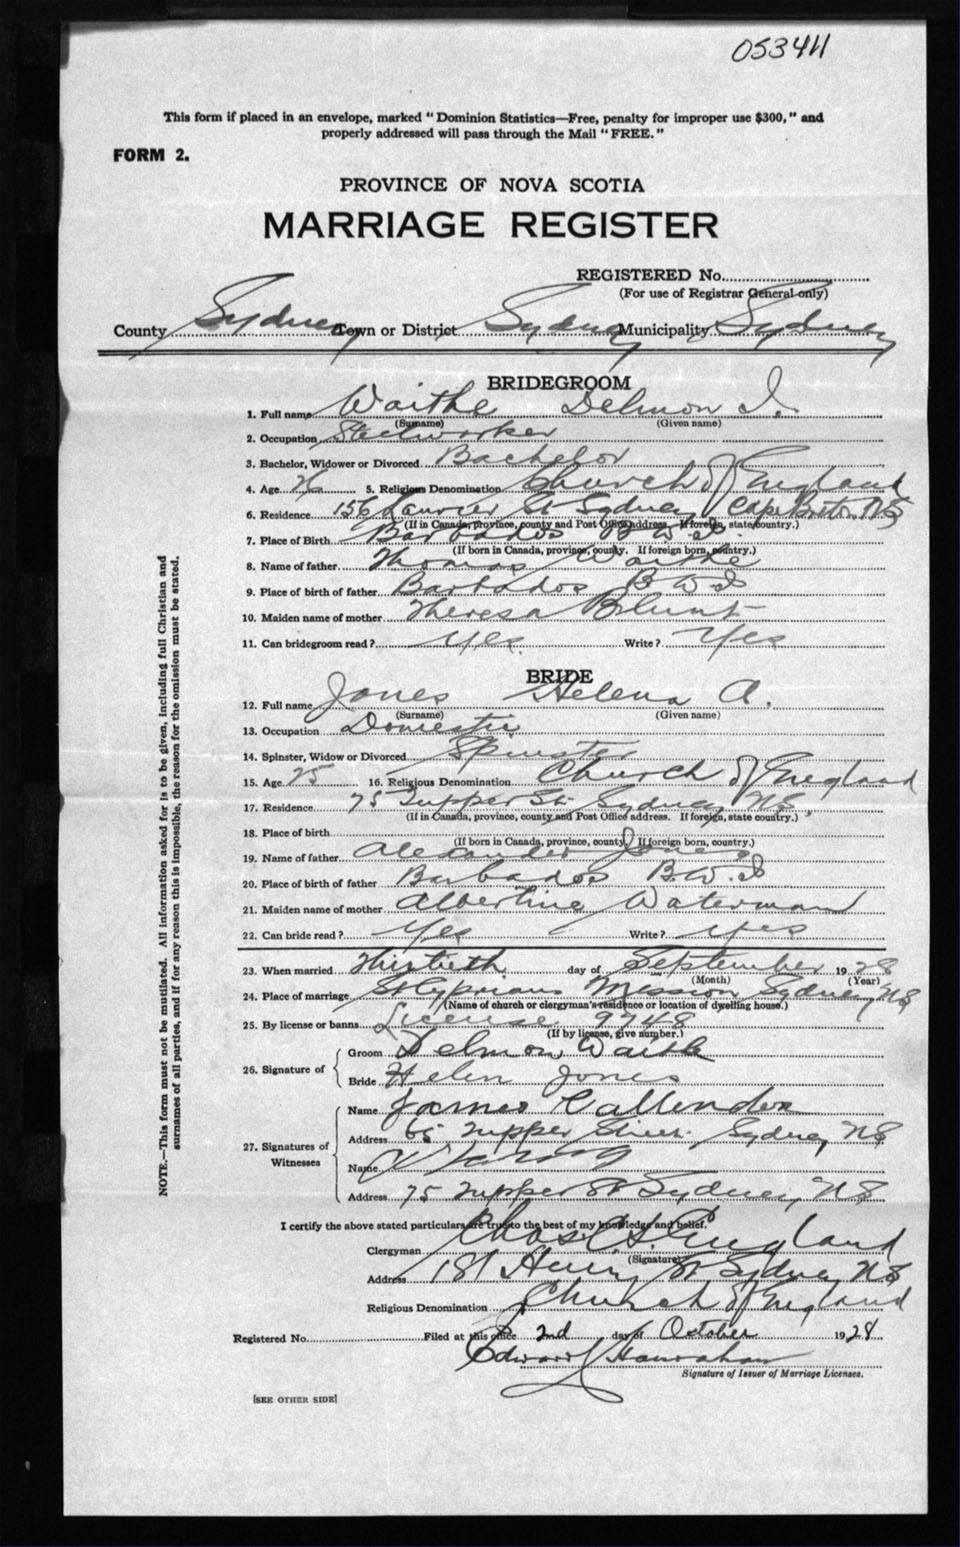 053411
This form if placed in an envelope, marked "Dominion Statistics—Free, penalty for improper use $300," and
properly addressed will pass through the Mail "FREE."
FORM 2.
PROVINCE OF NOVA SCOTIA
MARRIAGE REGISTER
REGISTERED No.
(For use of Registrar General only)
County Sydney Town or District Sydney Municipality Sydney
BRIDEGROOM
1. Full name Waithe Delmon I.
(Surname) (Given name)
2. Occupation Steelworker
3. Bachelor, Widower or Divorced Bachelor
4. Age 26 5. Religious Denomination Church of England
6. Residence 156 Laurier St Sydney Cape Breton NS
(If in Canada, province, county and Post Office address. If foreign, state country.)
7. Place of Birth Barbados B.W.I.
(If born in Canada, province, county. If foreign born, country.)
8. Name of father Thomas Waithe
9. Place of birth of father Barbados B W I
10. Maiden name of mother Theresa Blunt
11. Can bridegroom read? Yes. Write? Yes
BRIDE
12. Full name Jones Helena A.
(Surname) (Given name)
13. Occupation Domestic
14. Spinster, Widow or Divorced Spinster
15. Age 25 16. Religious Denomination Church of England
17. Residence 75 Tupper St. Sydney, NS,
(If in Canada, province, county and Post Office address. If foreign, state country.)
18. Place of birth
(If born in Canada, province, county. If foreign born, country.)
19. Name of father Alexander Jones
20. Place of birth of father Barbados B.W.I
21. Maiden name of mother Albertine Waterman
22. Can bride read? Yes Write? yes
23. When married Thirtieth day of September 1928
(Month) (Year)
24. Place of marriage St Cyprians Mission Sydney, NS
(Name of church or clergyman's residence or location of dwelling house.)
25. By license or banns License 9748
(If by license, give number.)
26. Signature of
Groom Delmon Waithe
Bride Helen Jones
27. Signatures of Witnesses
Name James Callender
Address Tupper Street Sydney NS
Name
Address 75 Tupper St Sydney, NS
I certify the above stated particulars are true to the best of my knowledge and belief.
Clergyman Chas. England
(Signature)
Address 181 Henry St Sydney NS
Religious Denomination Church of England
Registered No. Filed at this office 2nd day of October 1928
Edward Hanrahan
Signature of Issuer of Marriage Licenses.
[SEE OTHER SIDE]
NOTE.—This form must not be mutilated. All information asked for is to be given, including full Christian and
surnames of all parties, and if for any reason this is impossible, the reason for the omission must be stated.